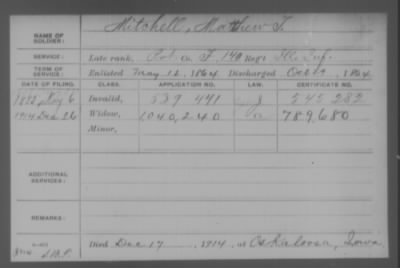 NAME OF SOLDIER: Mitchell, Mathew T.
SERVICE: Late rank, Pvt Co. F, 140 Reg't Ills Inf.
TERM OF SERVICE: Enlisted May 12, 1864 Discharged Oct 1864
DATE OF FILING. CLASS. APPLICATION NO. LAW. CERTIFICATE NO.
6 Invalid, 539 441 J 545 282
1914 Dec 26 Widow, 1040,240 789,680
Minor,
ADDITIONAL SERVICES:
REMARKS:
Died Dec 17 1914, at Oskaloosa, Iowa